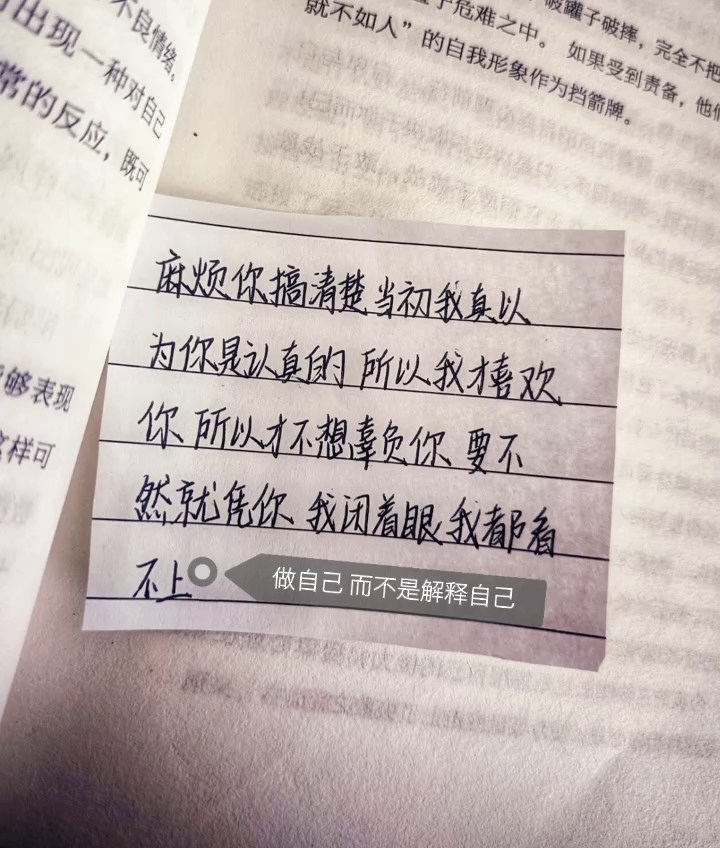 不良情绪。
出现一种对自己
常的反应，既可
够表现
这样可
破罐子破摔，完全不把
于危难之中。如果受到责备，他们
就不如人”的自我形象作为挡箭牌。
麻烦你搞清楚当初我真以
为你是认真的 所以我才喜欢
你 所以才不想辜负你 要不
然就凭你 我闭着眼 我都看
不上
做自己 而不是解释自己